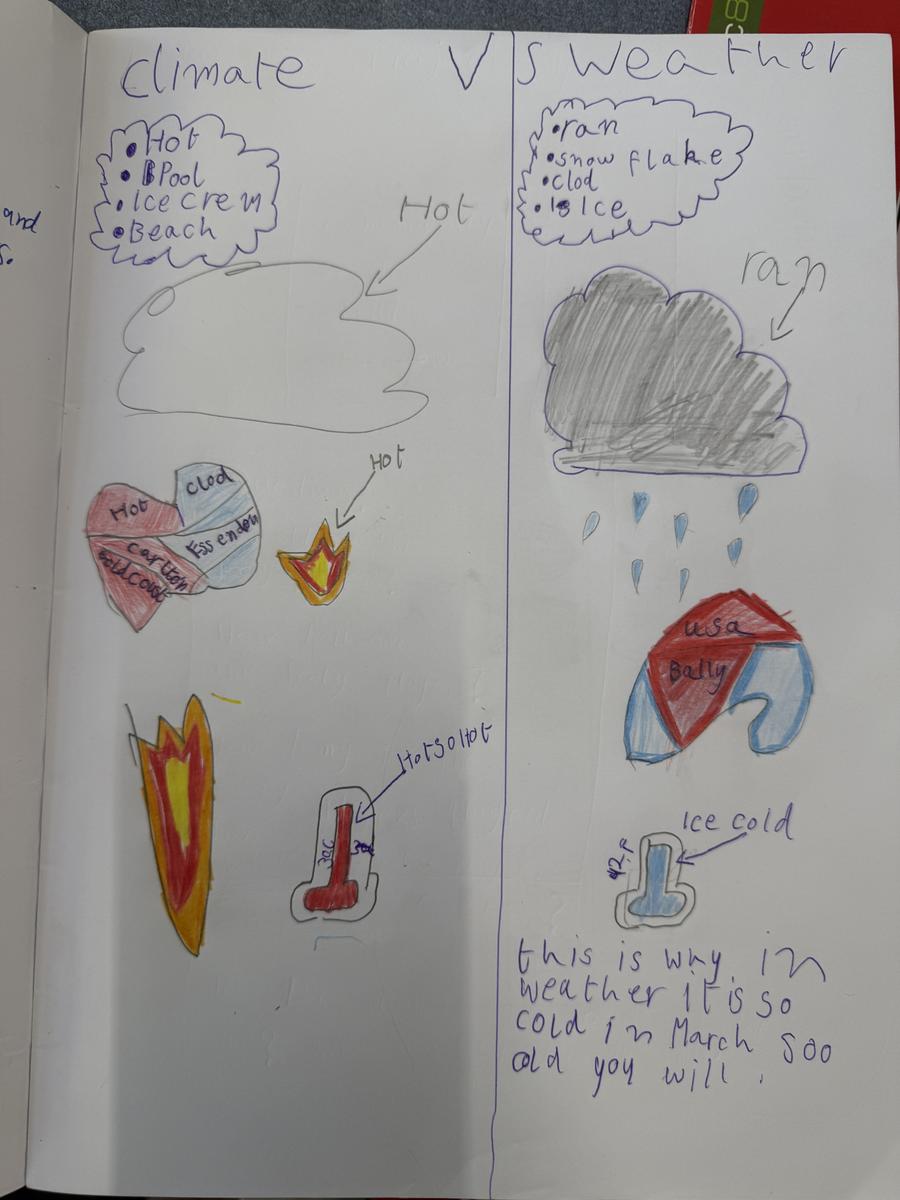 climate Vs weather
• Hot
• Pool
• Ice crem
• Beach
Hot
Clod
Hot
Essendon
carlton
Goldcoust
Hot
Hotsohot
39c
• ran
• snow flake
• Clod
• Ice
ran
usa
Bally
Ice cold
42.F
this is why in
weather it is so
cold in March soo
cold you will.
and
s.
c8